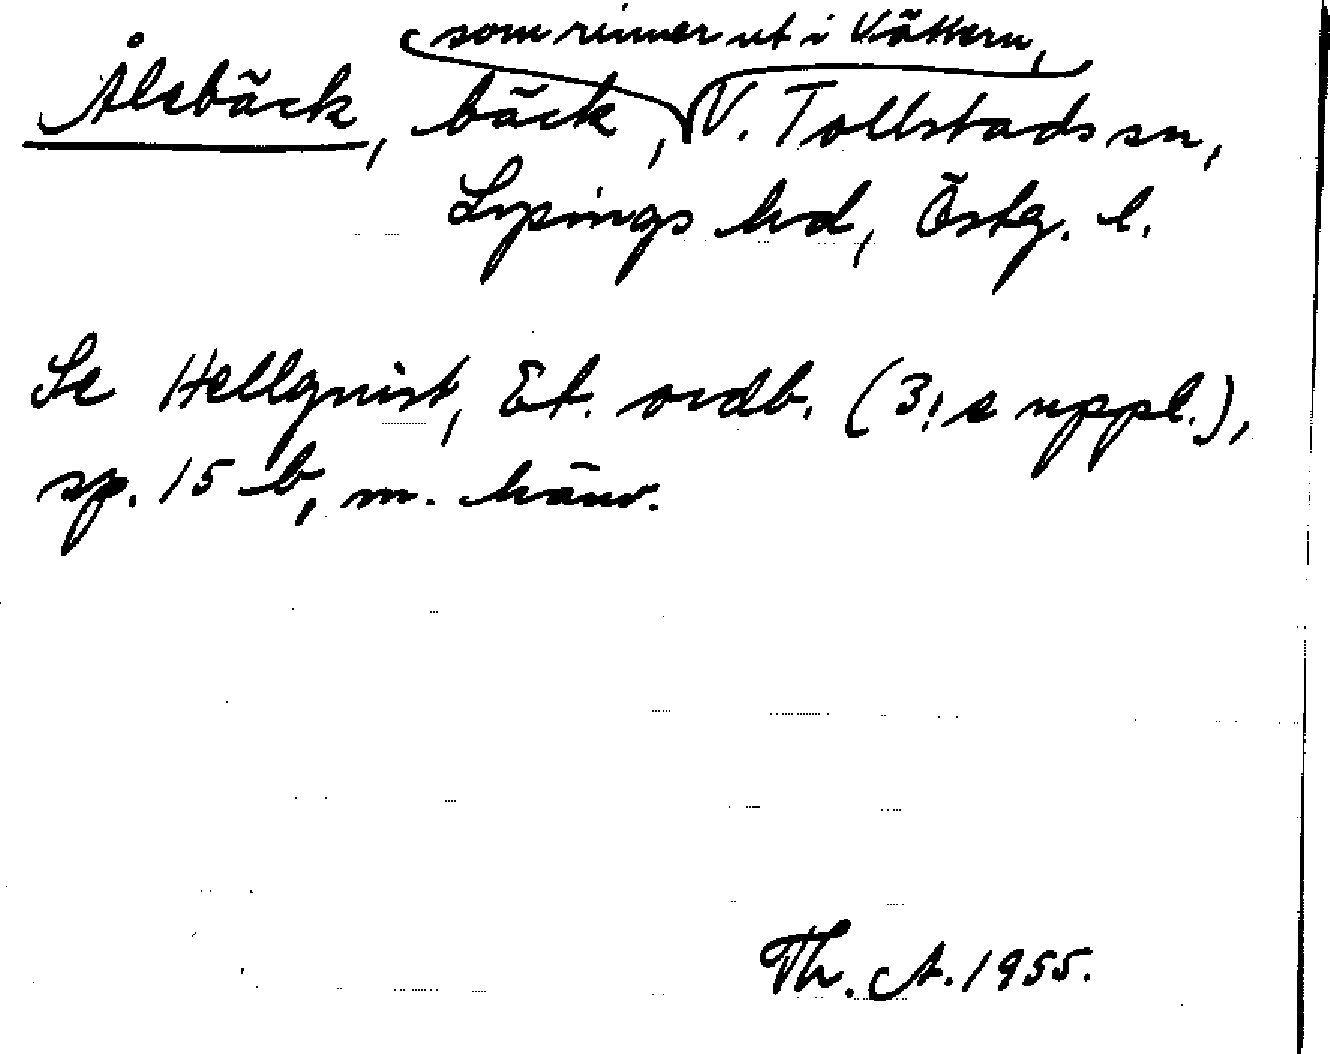 som rinner ut i Vättern,
Ålebäck, bäck, V. Tollstads sn,
Lysings hd, Östg. l.
Se Hellquist, Et. ordb. (3:e uppl.),
sp. 15 b, m. hänv.
Th. A. 1955.